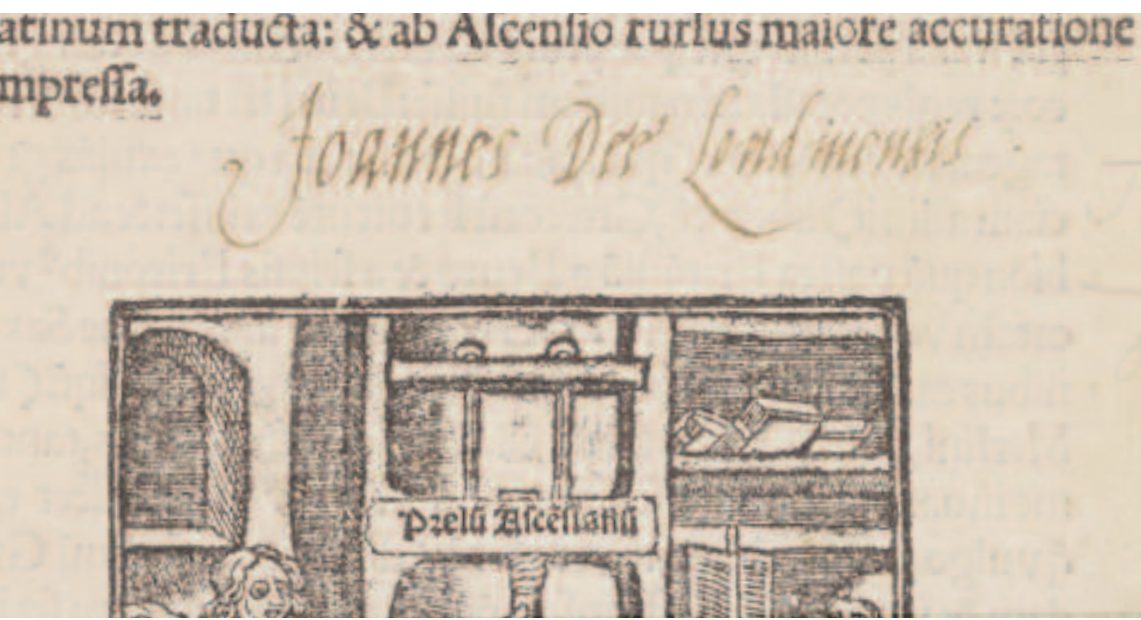 atinum traducta: & ab Aſcenſio rurſus maiore accuratione
mpreſſa.
Joannes Dee Londinensis
Prelū Aſcēſianū